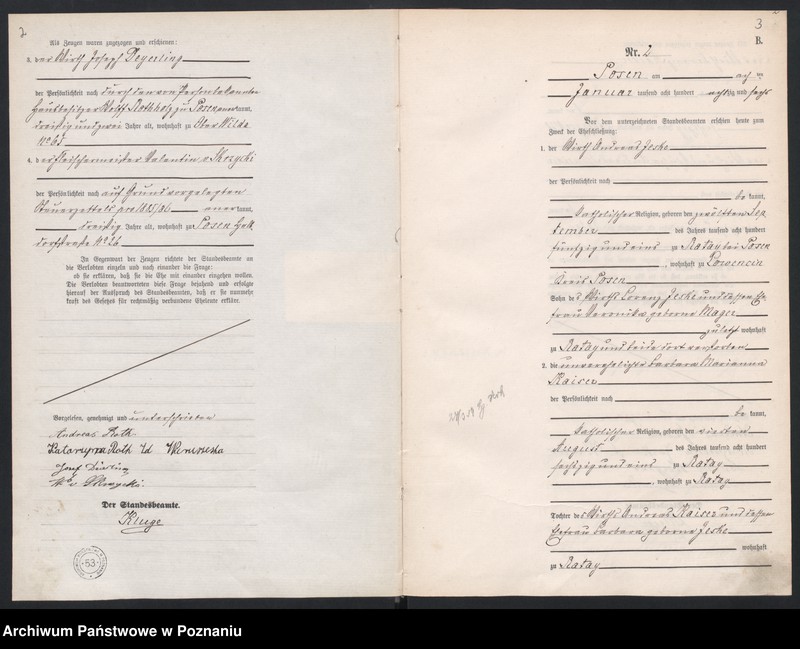 2
Als Zeugen waren zugezogen und erschienen:
3. der Wirth Joseph Deyerling
der Persönlichkeit nach durch den von Person bekannten
Hausbesitzer Rothholz zu Posen anerkannt,
dreißig und zwei Jahre alt, wohnhaft zu Ober Wilda
No 65
4. der Fleischermeister Valentin v. Skrzycki
der Persönlichkeit nach auf Grund vorgelegten
Steuerzettels pro 1885/86 anerkannt,
dreißig Jahre alt, wohnhaft zu Posen Halb
dorfstraße No 26
In Gegenwart der Zeugen richtete der Standesbeamte an
die Verlobten einzeln und nach einander die Frage:
ob sie erklären, daß sie die Ehe mit einander eingehen wollen.
Die Verlobten beantworteten diese Frage bejahend und erfolgte
hierauf der Ausspruch des Standesbeamten, daß er sie nunmehr
kraft des Gesetzes für rechtmäßig verbundene Eheleute erkläre.
Vorgelesen, genehmigt und unterschrieben
Andreas Roth
Kataryna Roth
Josef
W. v. Skrzycki
Der Standesbeamte.
Kluge
53
3
B.
Nr. 2
Posen am acht
Januar tausend acht hundert achtzig und sechs
Vor dem unterzeichneten Standesbeamten erschien heute zum
Zweck der Eheschließung:
1. der Wirth Andreas Jeske
der Persönlichkeit nach
be kannt,
katholischer Religion, geboren den zwölften Sep
tember des Jahres tausend acht hundert
fünfzig und eins zu Rataj bei Posen
, wohnhaft zu
Kreis Posen
Sohn des Wirths Lorenz Jeske und dessen Ehe
frau Veronika geborne Mager
zuletzt wohnhaft
zu Rataj und beide dort verstorben
2. die unverehelichte Barbara Marianna
Kaiser
der Persönlichkeit nach
be kannt,
katholischer Religion, geboren den vierten
August des Jahres tausend acht hundert
sechzig und eins zu Rataj
, wohnhaft zu Rataj
Tochter des Wirths Andreas Kaiser und dessen
Ehefrau Barbara geborne Jeske
wohnhaft
zu Rataj
Archiwum Państwowe w Poznaniu